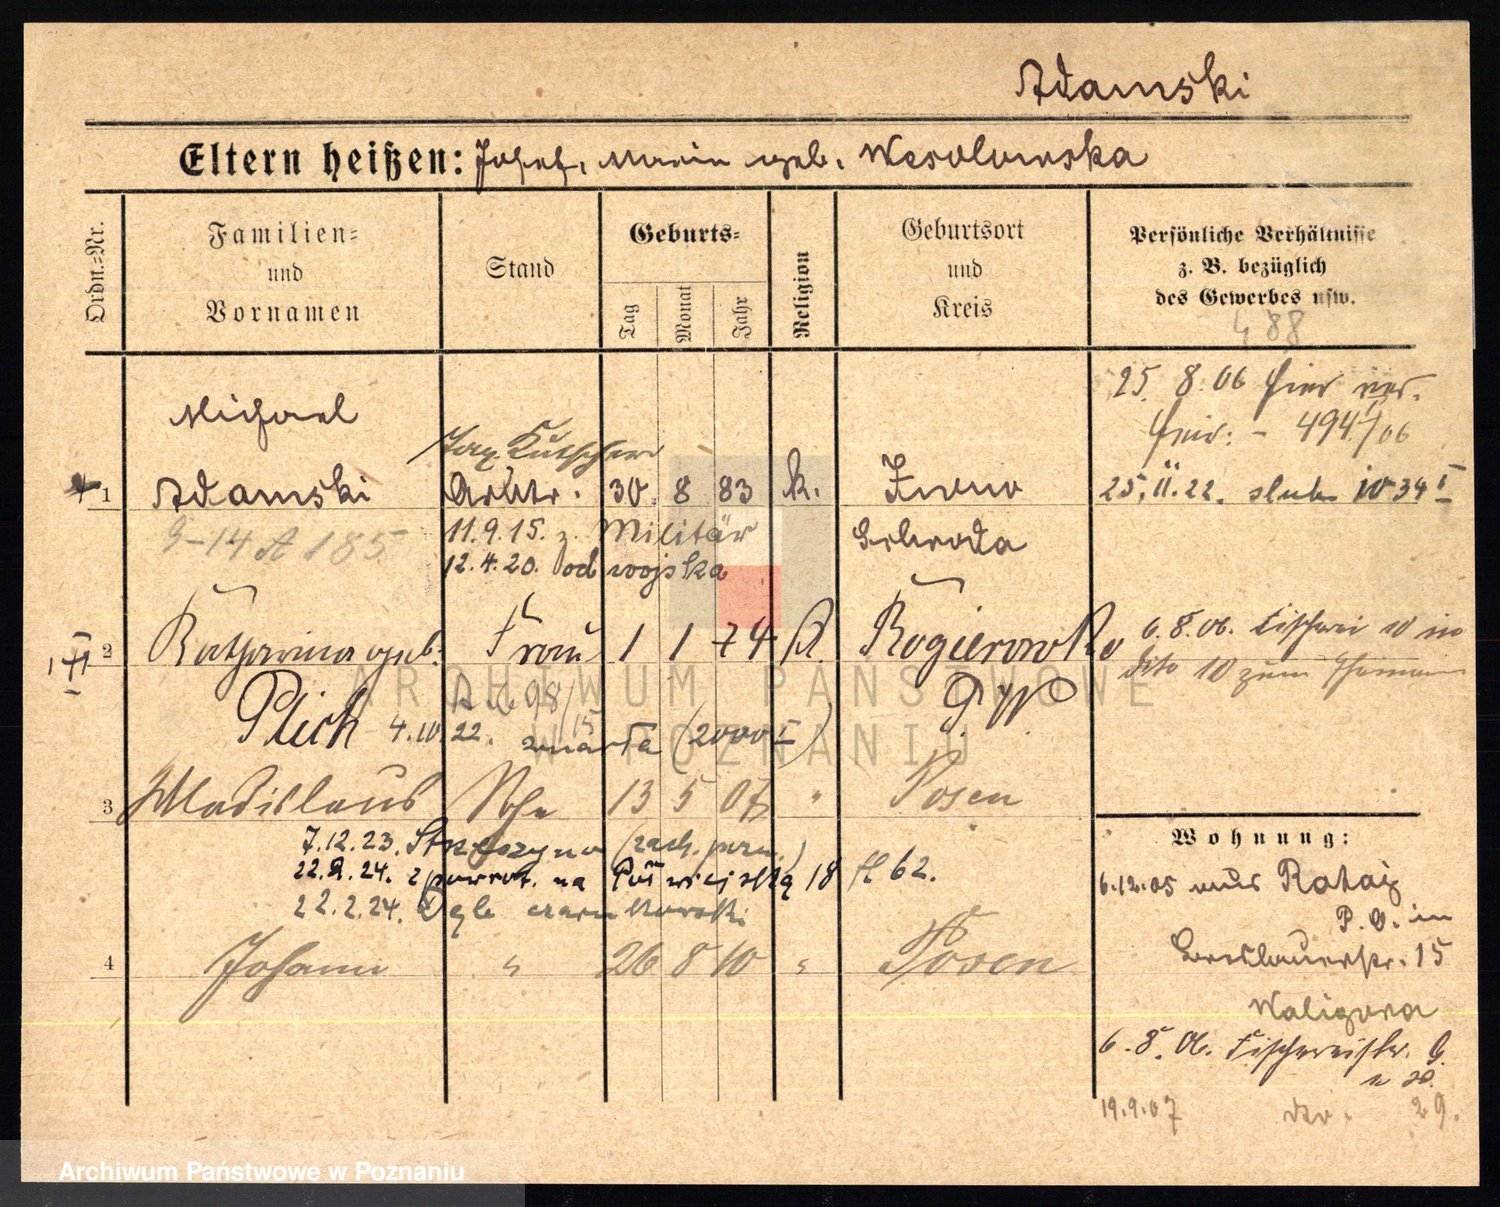 Adamski
Eltern heißen: Josef, Maria geb. Wesolowska
Ordn.=Nr.
Familien=
und
Vornamen
Stand
Geburts=
Tag
Monat
Jahr
Religion
Geburtsort
und
Kreis
Persönliche Verhältnisse
z. B. bezüglich
des Gewerbes usw.
488
25. 8. 06 hier ver.
heir. - 494/06
Michael
Kutscher
1 Adamski Arbtr. 30. 8 83 k. 25. 11. 22. ślub 1034 I
G-14 A 185
11. 9. 15. z. Militär
Schroda
12. 4. 20. od wojska
2 Katharina geb. Frau 1 1 74 k. Rogierowko
6. 8. 06.
Plich P. W.
4. 10. 22. zmarła (2000 I)
3 Wladislaus Sohn 13 5 07 " Posen
7. 12. 23. Strzeszyno (zach. pozn.)
22. 2. 24. z powrot. na Półwiejską 18 fl 62.
22. 2. 24.
4 Johann " 26 8 10 " Posen
Wohnung:
6. 12. 05 aus Rataj
P. O. in
Breslauerstr. 15
Waligora
6. 8. 06. Fischereistr. 9.
19. 9. 07 dto. 29.
ARCHIWUM PAŃSTWOWE
W POZNANIU
Archiwum Państwowe w Poznaniu